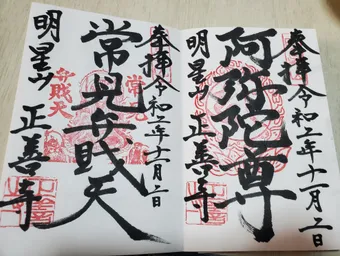 奉拝 令和二年十一月二日
阿弥陀尊
明星山 正善寺
奉拝 令和二年十一月二日
常見弁戝天
明星山 正善寺
常見
弁戝天